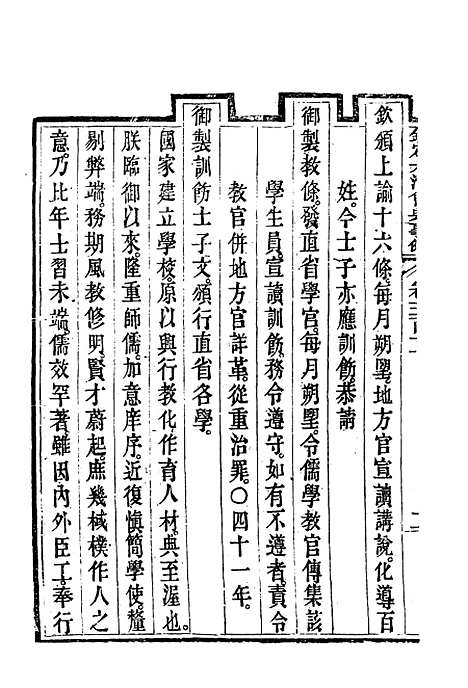 欽頒上諭十六條。每月朔望。地方官宣讀講說。化導百
姓。今士子亦應訓飭。恭請
御製教條。發直省學官。每月朔望。令儒學教官傳集該
學生員。宣讀訓飭。務令遵守。如有不遵者。責令
教官併地方官詳革。從重治罪。〇四十一年。
御製訓飭士子文。頒行直省各學。
國家建立學校。原以興行教化。作育人材。典至渥也。
朕臨御以來。隆重師儒。加意庠序。近復慎簡學使。釐
剔弊端。務期風教修明。賢才蔚起。庶幾棫樸作人之
意。乃比年士習未端。儒效罕著。雖因內外臣工。奉行